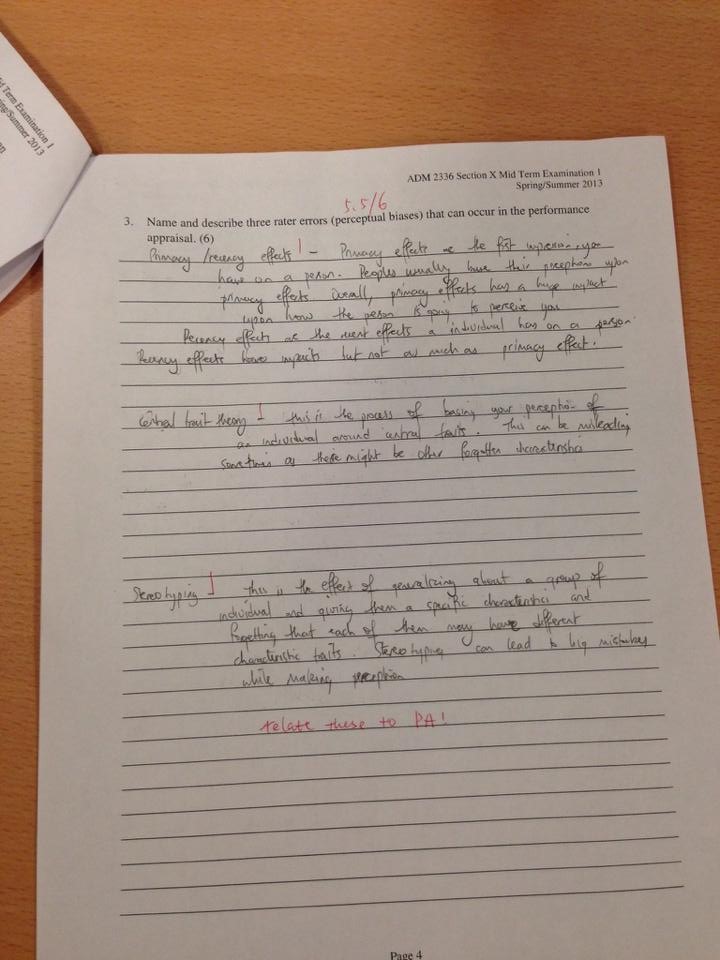 d Term Examination 1
ing/Summer 2013
ADM 2336 Section X Mid Term Examination 1
Spring/Summer 2013
5.5/6
3. Name and describe three rater errors (perceptual biases) that can occur in the performance
appraisal. (6)
Primacy / recency effects - Primacy effects are the first impression you
have on a person. Peoples usually base their perceptions upon
primacy effects. Overall, primacy effects has a huge impact
upon how the person is going to perceive you
Recency effects are the recent effects a individual has on a person.
Recency effects have impacts but not as much as primacy effect.
Central trait theory - this is the process of basing your perception of
an individual around central traits. This can be misleading
sometimes as there might be other forgotten characteristics
Stereotyping - this is the effect of generalizing about a group of
individual and giving them a specific characteristics and
forgetting that each of them may have different
characteristic traits. Stereotyping can lead to big mistakes
while making perception
relate these to PA!
Page 4